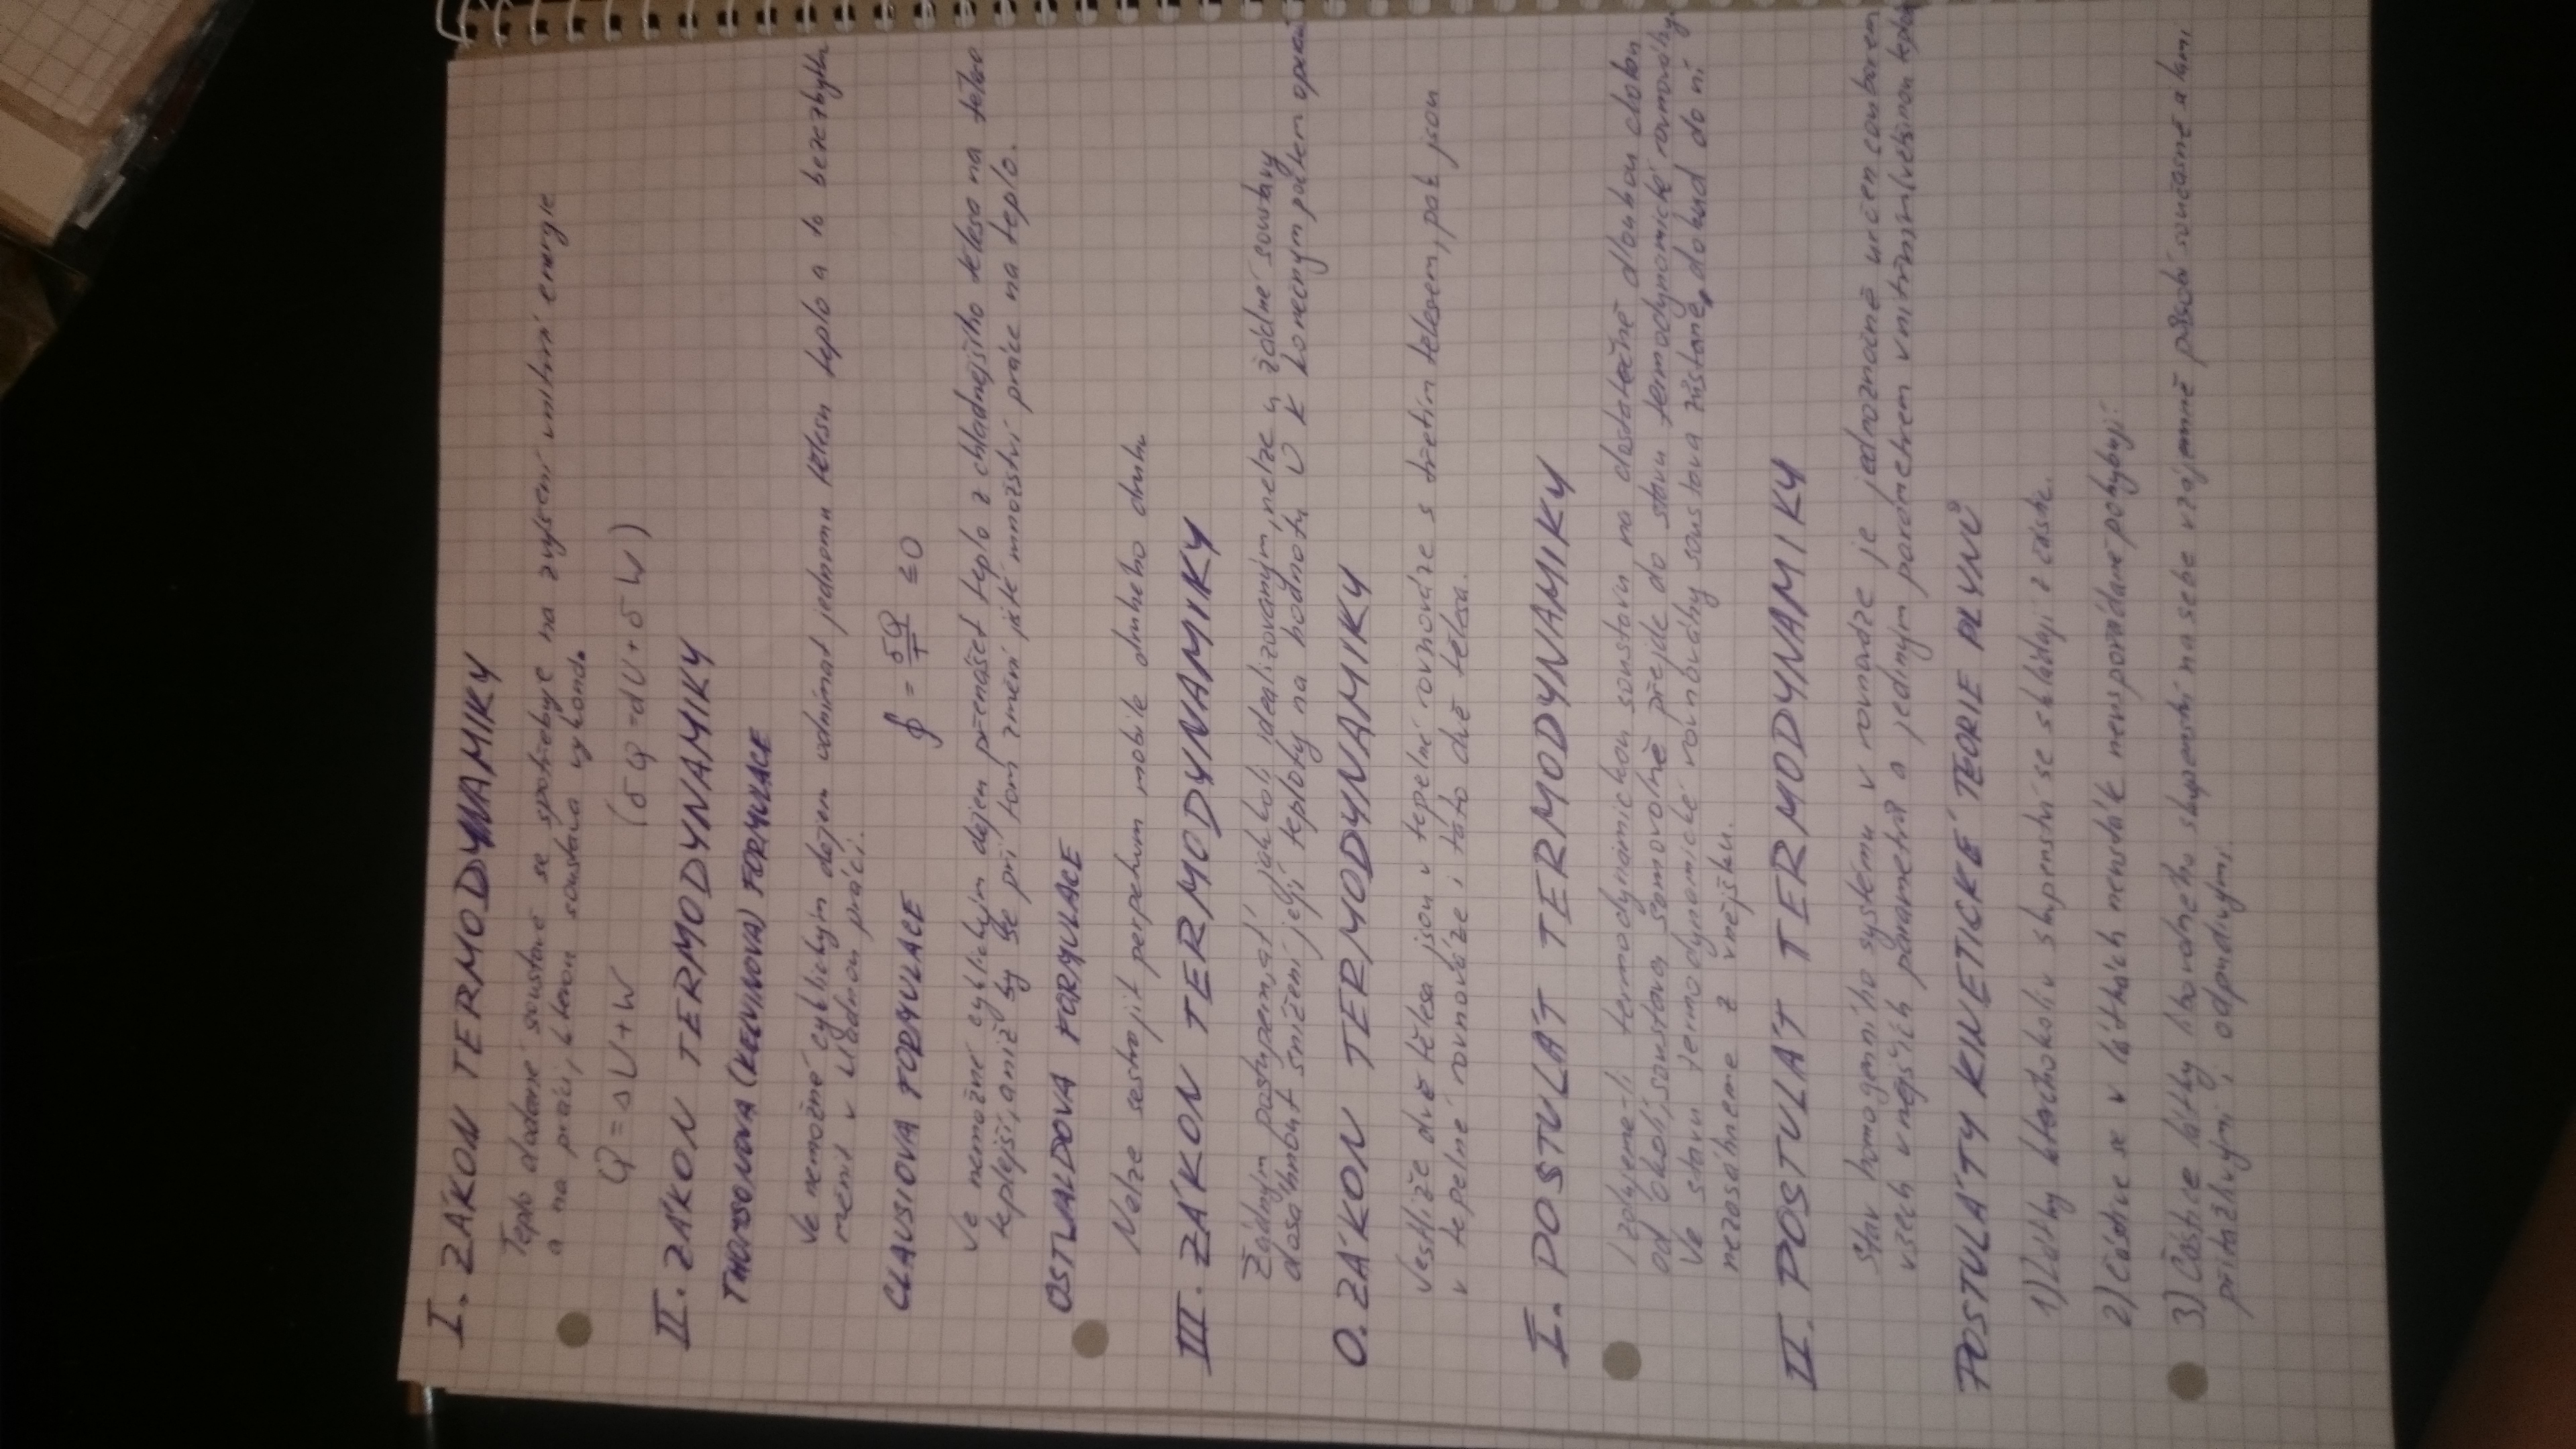 I. ZÁKON TERMODYNAMIKY
Teplo dodané soustavě se spotřebuje na zvýšení vnitřní energie
a na práci, kterou soustava vykoná.
Q = ΔU + W (δQ = dU + δW)
II. ZÁKON TERMODYNAMIKY
THOMSONOVA (KELVINOVA) FORMULACE
Je nemožné cyklickým dějem odnímat jednomu tělesu teplo a to bezezbytku
měnit v kladnou práci.
CLAUSIOVA FORMULACE ∮ = δQ/T ≤ 0
Je nemožné cyklickým dějem přenášet teplo z chladnějšího tělesa na těleso
teplejší, aniž by se při tom změní jisté množství práce na teplo.
OSTWALDOVA FORMULACE
Nelze sestrojit perpetuum mobile druhého druhu
III. ZÁKON TERMODYNAMIKY
Žádným postupem, ať jakkoli idealizovaným, nelze u žádné soustavy
dosáhnout snížení její teploty na hodnotu 0 K konečným počtem operací
0. ZÁKON TERMODYNAMIKY
Jestliže dvě tělesa jsou v tepelné rovnováze s třetím tělesem, pak jsou
v tepelné rovnováze i tato dvě tělesa.
I. POSTULÁT TERMODYNAMIKY
Izolujeme-li termodynamickou soustavu na dostatečně dlouhou dobu
od okolí, soustava samovolně přejde do stavu termodynamické rovnováhy.
Ve stavu termodynamické rovnováhy soustava zůstane, dokud do ní
nezasáhneme z vnějšku.
II. POSTULÁT TERMODYNAMIKY
Stav homogenního systému v rovnováze je jednoznačně určen souborem
všech vnějších parametrů a jediným parametrem vnitřním (většinou
POSTULÁTY KINETICKÉ TEORIE PLYNŮ
1) Látky kteréhokoliv skupenství se skládají z částic.
2) Částice se v látkách neustále neuspořádaně pohybují.
3) Částice látky libovolného skupenství na sebe vzájemně působí současně silami
přitažlivými i odpudivými.